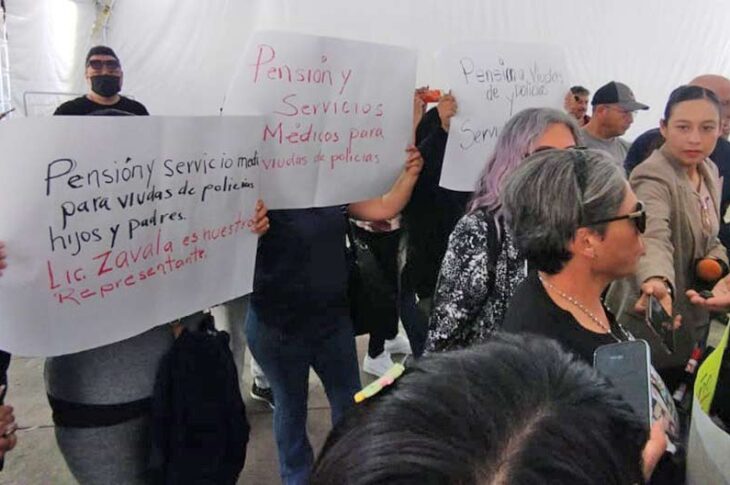 Pensión y servicio medi
para viudas de policias
hijos y padres.
Lic. Zavala es nuestro
Representante.
Pensión y
Servicios
Médicos para
viudas de policias
Pension a Viudas
de policias
y
Serv